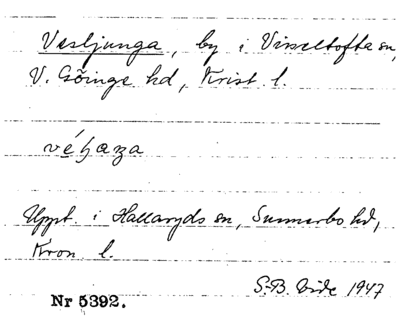 Vesljunga, by i Visseltofta sn,
V. Göinge hd, Krist. l.
Uppt. i Hallaryds sn, Sunnerbo hd,
Kron. l.
S.-B. Vide 1947
Nr 5392.